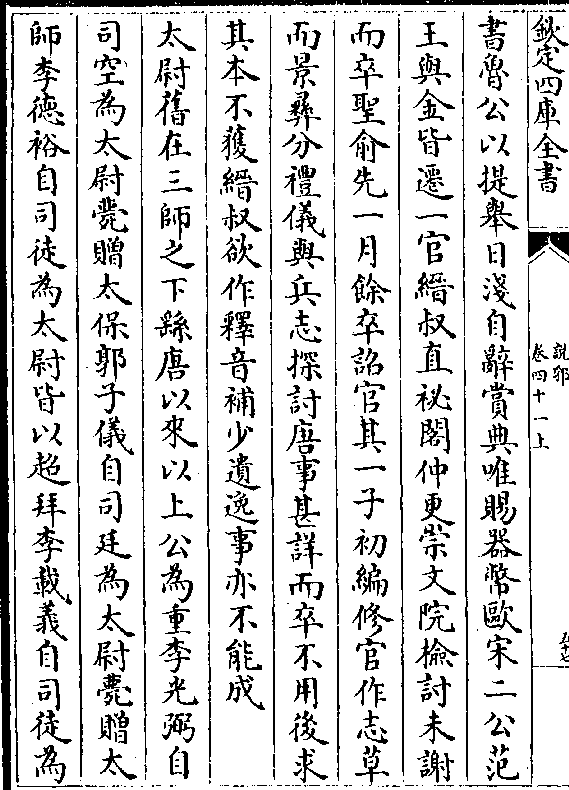 欽定四庫全書
說郛
卷四十一上
書魯公以提舉日淺自辭賞典唯賜器幣歐宋二公范
王與金皆遷一官縉叔直祕閣仲更崇文院檢討未謝
而卒聖俞先一月餘卒詔官其一子初編修官作志草
而景彛分禮儀與兵志探討唐事甚詳而卒不用後求
其本不獲縉叔欲作釋音補少遺逸事亦不能成
太尉舊在三師之下繇唐以來以上公為重李光弼自
司空為太尉薨贈太保郭子儀自司廷為太尉薨贈太
師李德裕自司徒為太尉皆以超拜李載義自司徒為